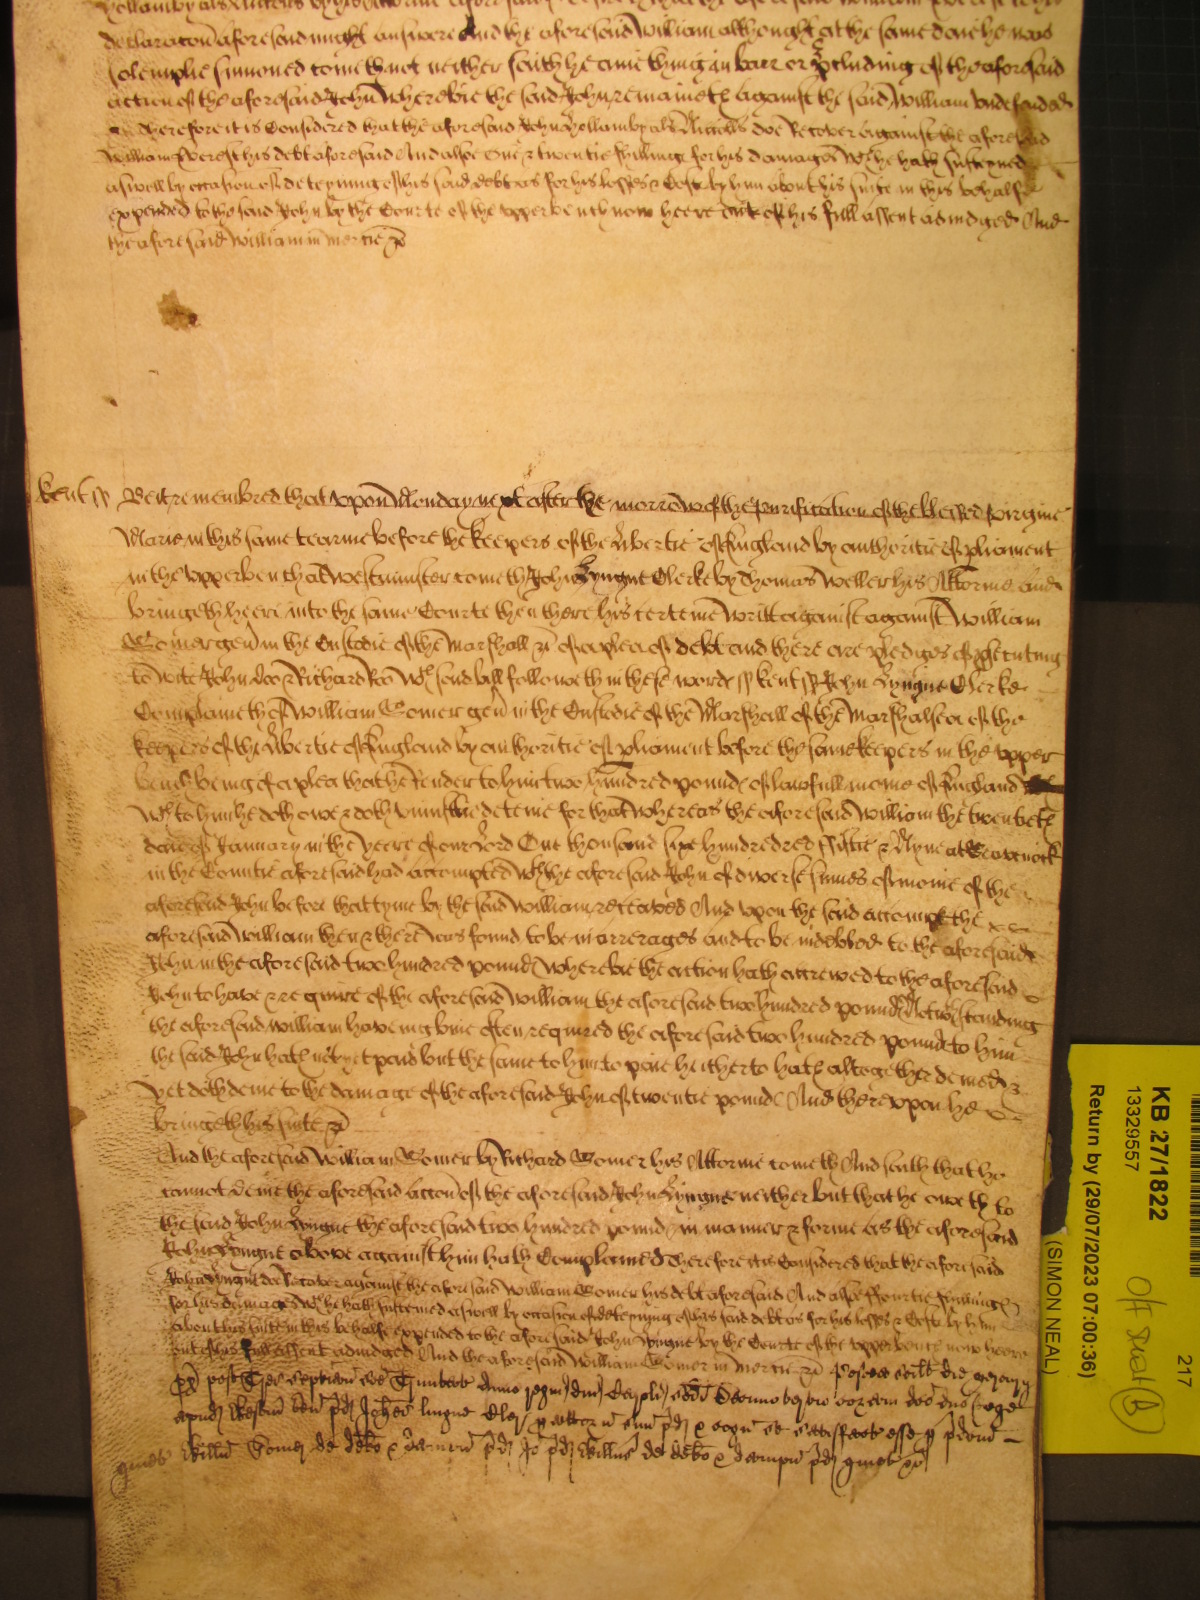 declaracon aforesaid might answere And the aforesaid William althought at the same daie he was
solemplie sumoned cometh not neither saith he anie thing in barr or pcluding of the aforesaid
action of the aforesaid John Wherebie the said John remaineth against the said William undefended
Therefore it is Considered that the aforesaid John Hollamby als Nicolls doe Recover against the aforesaid
William his debt aforesaid And alsoe One & twentie shillings for his damages wch he hath susteyned
aswell by occasion of deteyning of his said debt as for his losses & Costs by him about his suite in this behalfe
expended to the said John by the Courte of the upper bench now heere out of his full assent adiudged And
the aforesaid William in mercie &c
Kent ss Be it remembred that upon Monday next after the morrow of the purification of the blessed virgine
Marie in this same tearme before the keepers of the libertie of England by authoritie of pliament
in the upper bench at Westminster cometh John Lyngue Clerke by Thomas Weller his Attorney and
bringeth heere into the same Courte then there his certeine writt against against William
Gomer gen in the Custodie of the Marshall &c of a plea of debt and there are pledges of psecuting
to wite John Doo & Richard Roo Wch said bill followeth in these words ss Kent ss John Lyngue Clerke
Complaineth of William Gomer gen in the Custodie of the Marshall of the Marshalsea of the
keepers of the libertie of England by authoritie of pliament before the same keepers in the upper
bench being of a plea that he Render to him two hundred pounds of lawfull monie of England
Wch to him he doth owe & doth uniustlie deteine for that whereas the aforesaid William the twentieth
daie of January in the yeere of our Lord One thousand six hundredred fiftie & Nyne at
in the Countie aforesaid had accompted wth the aforesaid John of diverse sumes of monie of the
aforesaid John before that tyme by the said William receaved And upon the said accompt the
aforesaid William then & there was found to be in arrerages and to be indebted to the aforesaid
John in the aforesaid two hundred pounds Wherebie the action hath accrewed to the aforesaid
John to have & require of the aforesaid William the aforesaid two hundred pounds Notwthstanding
the aforesaid William having bine often required the aforesaid two hundred pounds to him
the said John hath not yet paid but the same to him to paie hitherto hath altogether denied &
yet doth denie to the damage of the aforesaid John of twentie pounds And thereupon he
bringeth his suite &c
And the aforesaid William Gomer by Richard Gomer his Attornie cometh And saith that he
cannot denie the aforesaid accon of the aforesaid John Lyngue neither but that he oweth to
the said John Lyngue the aforesaid two hundred pounds in manner & forme as the aforesaid
John Lyngue above against him hath Complained Therefore it is Considered that the aforesaid
John Lyngue doe Recover against the aforesaid William Gomer his debt aforesaid And alsoe ffourtie shillings
for his damages wch he hath susteined aswell by occasion of deteyning of his said debt as for his losses & Costs by him
about his suite in this behalfe expended to the aforesaid John Lyngue by the Courte of the upper bench now heere
out of his full assent adiudged And the aforesaid William Gomer in mercie &c Postea scilt die
px post Anno regni dni Caroli scdi coram dno Rege
apud Westm ven pd Johes Lingue Cler p attorn suum pd & cogn se satisfact esse p pdcm
Willm Gomer de debo & dampn pd Io pd Willus de debo & dampn pd quiet &c
KB 27/1822
13329557
Return by (29/07/2023 07:00:36)
(SIMON NEAL)
217
Off Sheet (B)